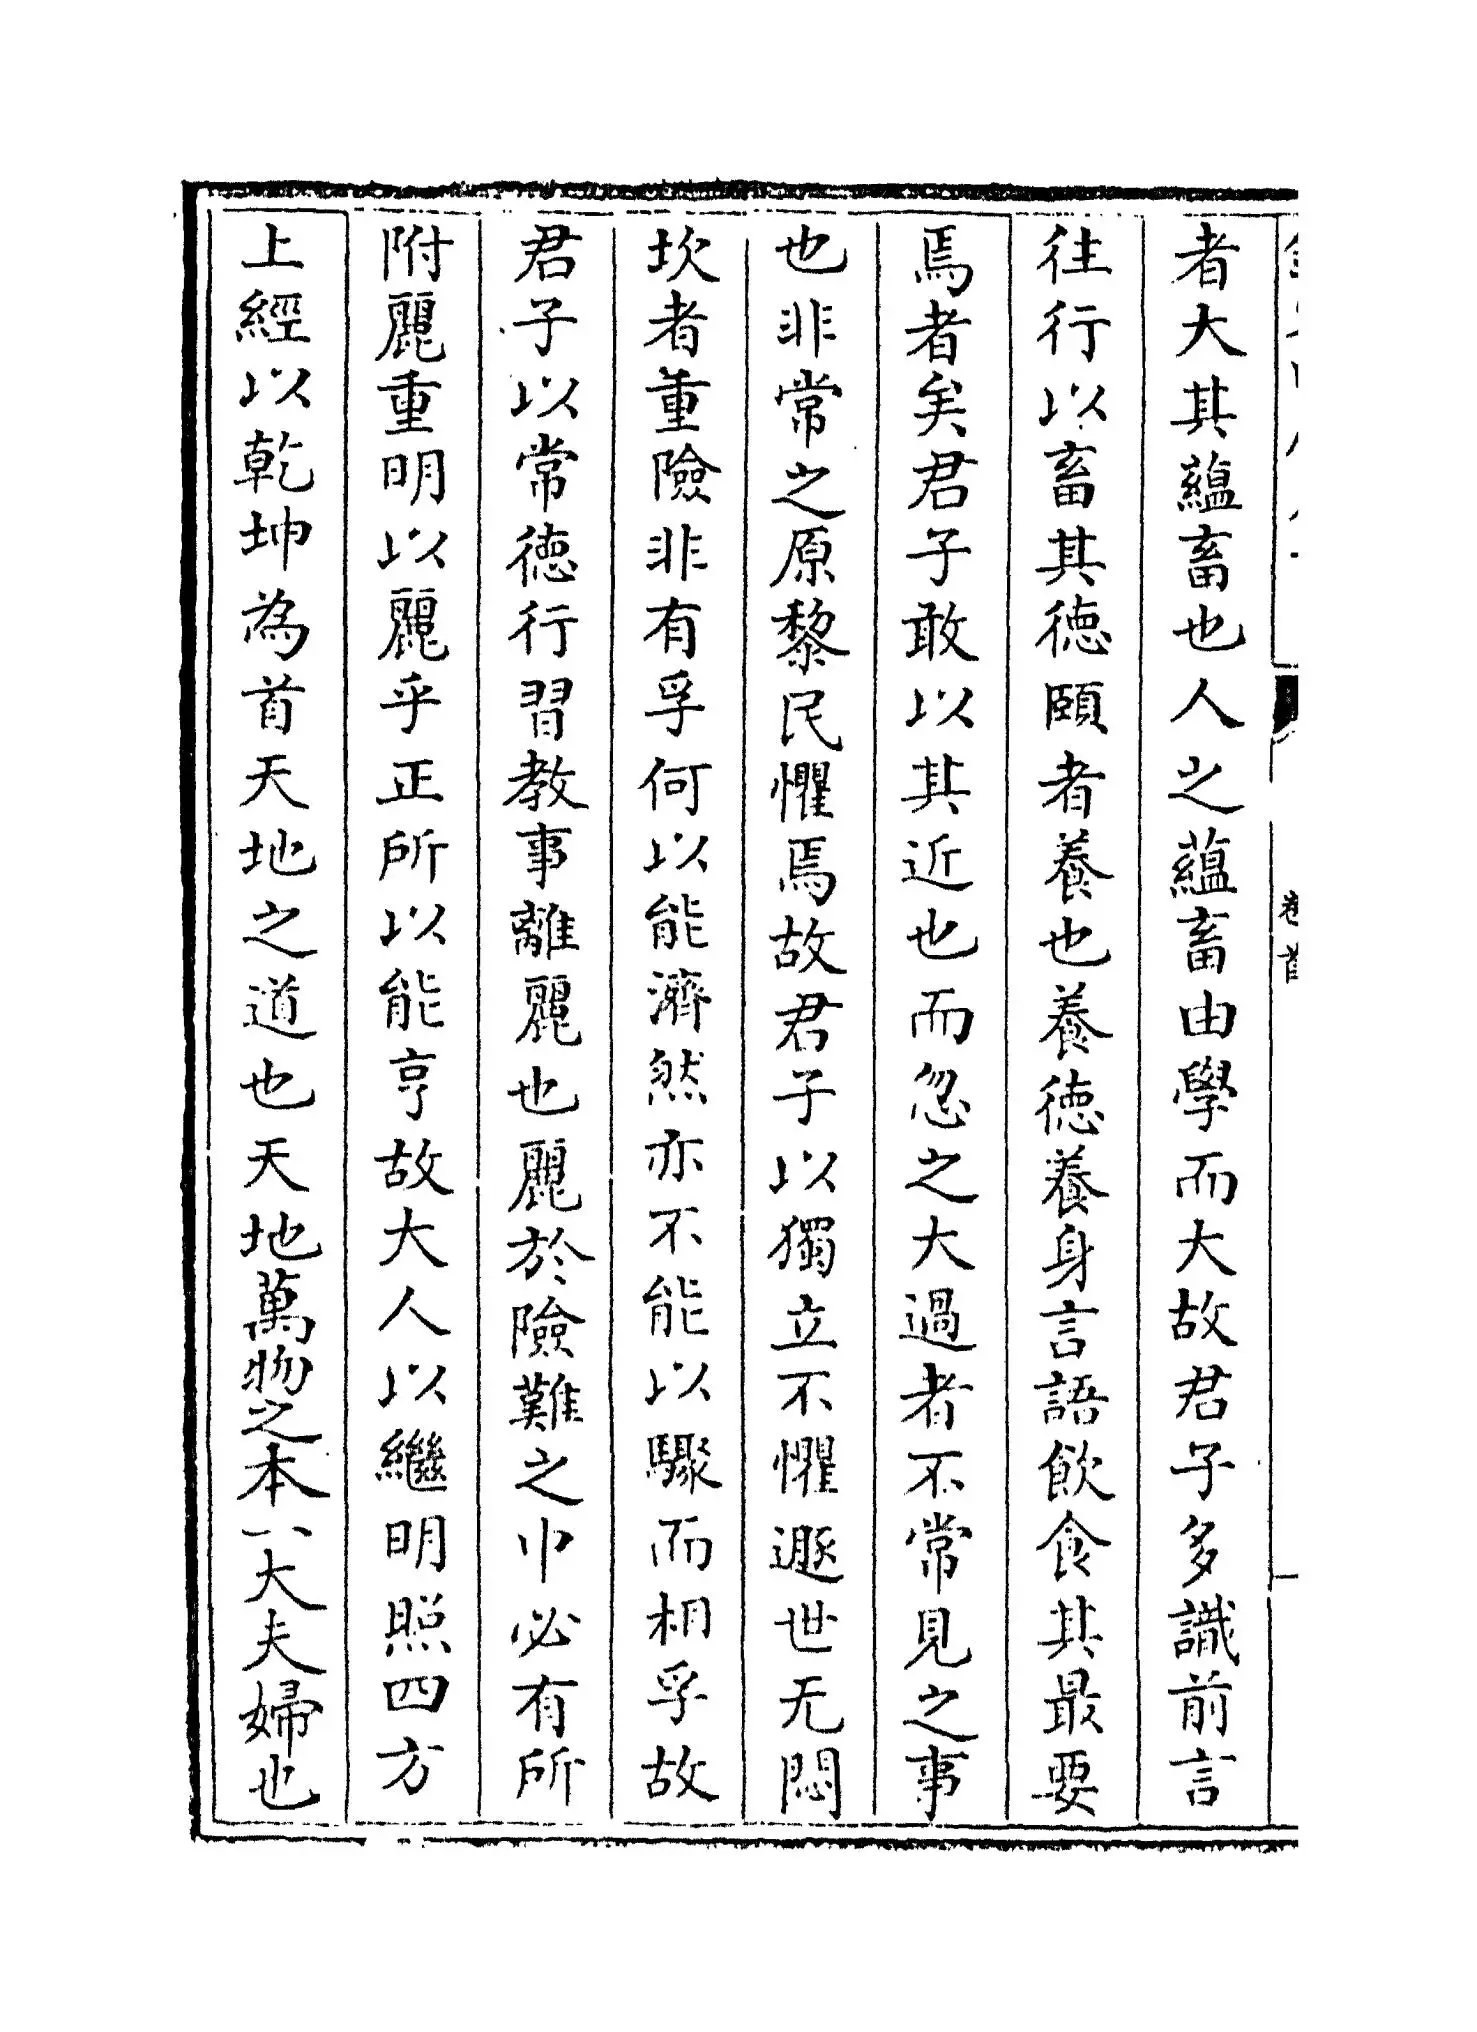 卷首
者大其蘊畜也人之蘊畜由學而大故君子多識前言
往行以畜其徳頤者養也養徳養身言語飲食其最要
焉者矣君子敢以其近也而忽之大過者不常見之事
也非常之原黎民懼焉故君子以獨立不懼遯世无悶
坎者重險非有孚何以能濟然亦不能以驟而相孚故
君子以常徳行習教事離麗也麗於險難之中必有所
附麗重明以麗乎正所以能亨故大人以繼明照四方
上經以乾坤為首天地之道也天地萬物之本一大夫婦也